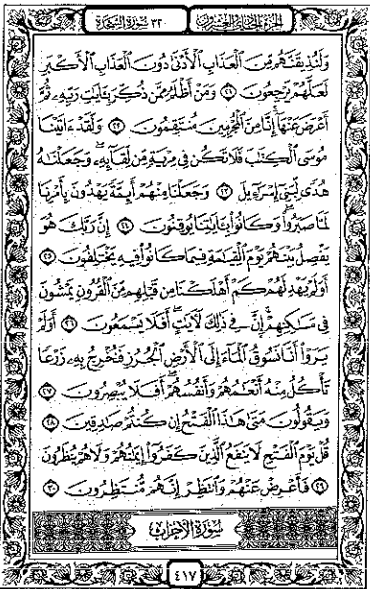 الجزء الحادي والعشرون
٣٢ سورة السجدة
وَلَنُذِيقَنَّهُم مِّنَ ٱلْعَذَابِ ٱلْأَدْنَىٰ دُونَ ٱلْعَذَابِ ٱلْأَكْبَرِ
لَعَلَّهُمْ يَرْجِعُونَ ٢١ وَمَنْ أَظْلَمُ مِمَّن ذُكِّرَ بِـَٔايَٰتِ رَبِّهِۦ ثُمَّ
أَعْرَضَ عَنْهَآ إِنَّا مِنَ ٱلْمُجْرِمِينَ مُنتَقِمُونَ ٢٢ وَلَقَدْ ءَاتَيْنَا
مُوسَى ٱلْكِتَٰبَ فَلَا تَكُن فِى مِرْيَةٍ مِّن لِّقَآئِهِۦ وَجَعَلْنَٰهُ
هُدًى لِّبَنِىٓ إِسْرَٰٓءِيلَ ٢٣ وَجَعَلْنَا مِنْهُمْ أَئِمَّةً يَهْدُونَ بِأَمْرِنَا
لَمَّا صَبَرُوا۟ وَكَانُوا۟ بِـَٔايَٰتِنَا يُوقِنُونَ ٢٤ إِنَّ رَبَّكَ هُوَ
يَفْصِلُ بَيْنَهُمْ يَوْمَ ٱلْقِيَٰمَةِ فِيمَا كَانُوا۟ فِيهِ يَخْتَلِفُونَ ٢٥
أَوَلَمْ يَهْدِ لَهُمْ كَمْ أَهْلَكْنَا مِن قَبْلِهِم مِّنَ ٱلْقُرُونِ يَمْشُونَ
فِى مَسَٰكِنِهِمْ إِنَّ فِى ذَٰلِكَ لَـَٔايَٰتٍ أَفَلَا يَسْمَعُونَ ٢٦ أَوَلَمْ
يَرَوْا۟ أَنَّا نَسُوقُ ٱلْمَآءَ إِلَى ٱلْأَرْضِ ٱلْجُرُزِ فَنُخْرِجُ بِهِۦ زَرْعًا
تَأْكُلُ مِنْهُ أَنْعَٰمُهُمْ وَأَنفُسُهُمْ أَفَلَا يُبْصِرُونَ ٢٧
وَيَقُولُونَ مَتَىٰ هَٰذَا ٱلْفَتْحُ إِن كُنتُمْ صَٰدِقِينَ ٢٨
قُلْ يَوْمَ ٱلْفَتْحِ لَا يَنفَعُ ٱلَّذِينَ كَفَرُوٓا۟ إِيمَٰنُهُمْ وَلَا هُمْ يُنظَرُونَ
٢٩ فَأَعْرِضْ عَنْهُمْ وَٱنتَظِرْ إِنَّهُم مُّنتَظِرُونَ ٣٠
سورة الأحزاب
٤١٧